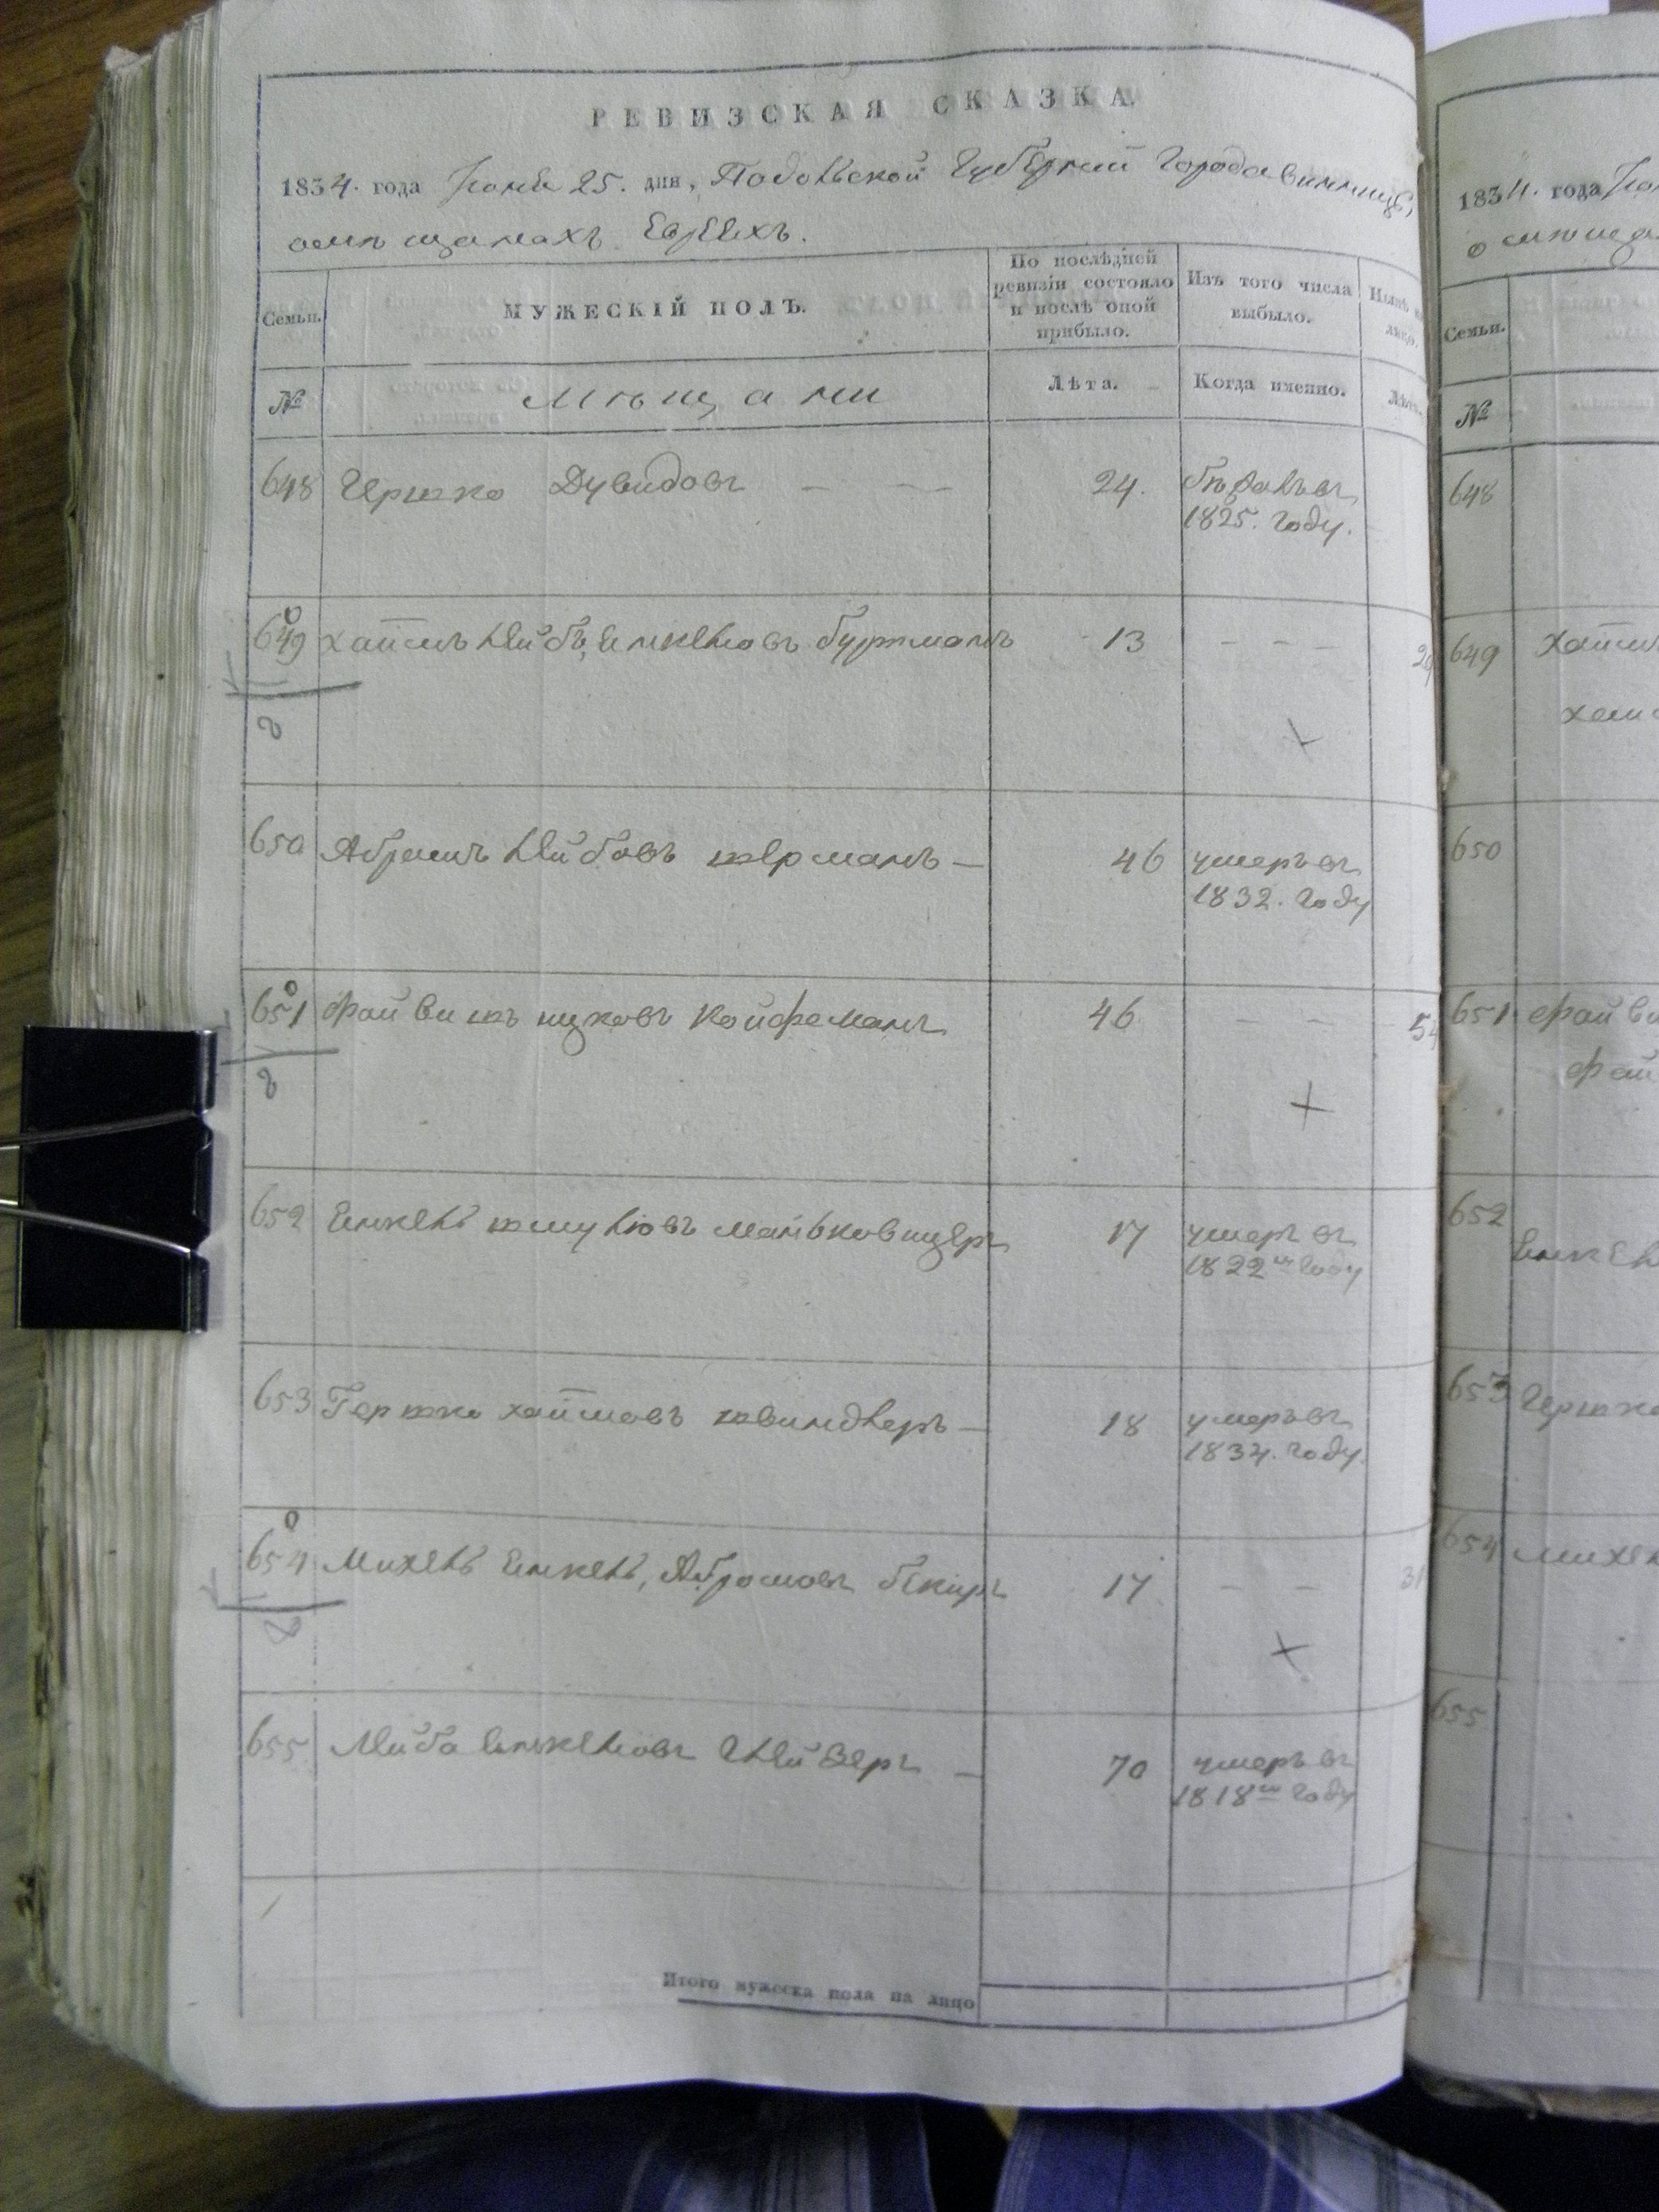 РЕВИЗСКАЯ СКАЗКА.
1834. года Іюня 25. дня, Подольской Губерніи Города Винницы,
о мѣщанахъ Евреяхъ.
Семьи.
МУЖЕСКІЙ ПОЛЪ.
По послѣдней ревизіи состояло и послѣ оной прибыло.
Изъ того числа выбыло.
№
Мѣщани
Лѣта.
Когда именно.
648 Гершко Дувидовъ — — 24. бѣжалъ въ
1825. году.
649 Хаимъ Лейбъ, Янкелювъ бурманъ 13 – – –
650 Абрамъ Лейбовъ шерманъ — 46 умеръ въ
1832. году
651 Файвишъ ицковъ Койфеманъ 46 – –
652 Янкель шмулювъ маньковицеръ 17 умеръ въ
1822м году
653 Гершко хаимовъ швиндлеръ — 18 умеръ въ
1834. году.
654 Михель Янкель, Абрамовъ 17 – –
655 Лейба Янкелювъ 70 умеръ въ
1818м году
Итого мужеска пола на лицо
1834. года
Семьи.
№
648
649 Хаимъ
650
651
652
653 Гершко
654
655